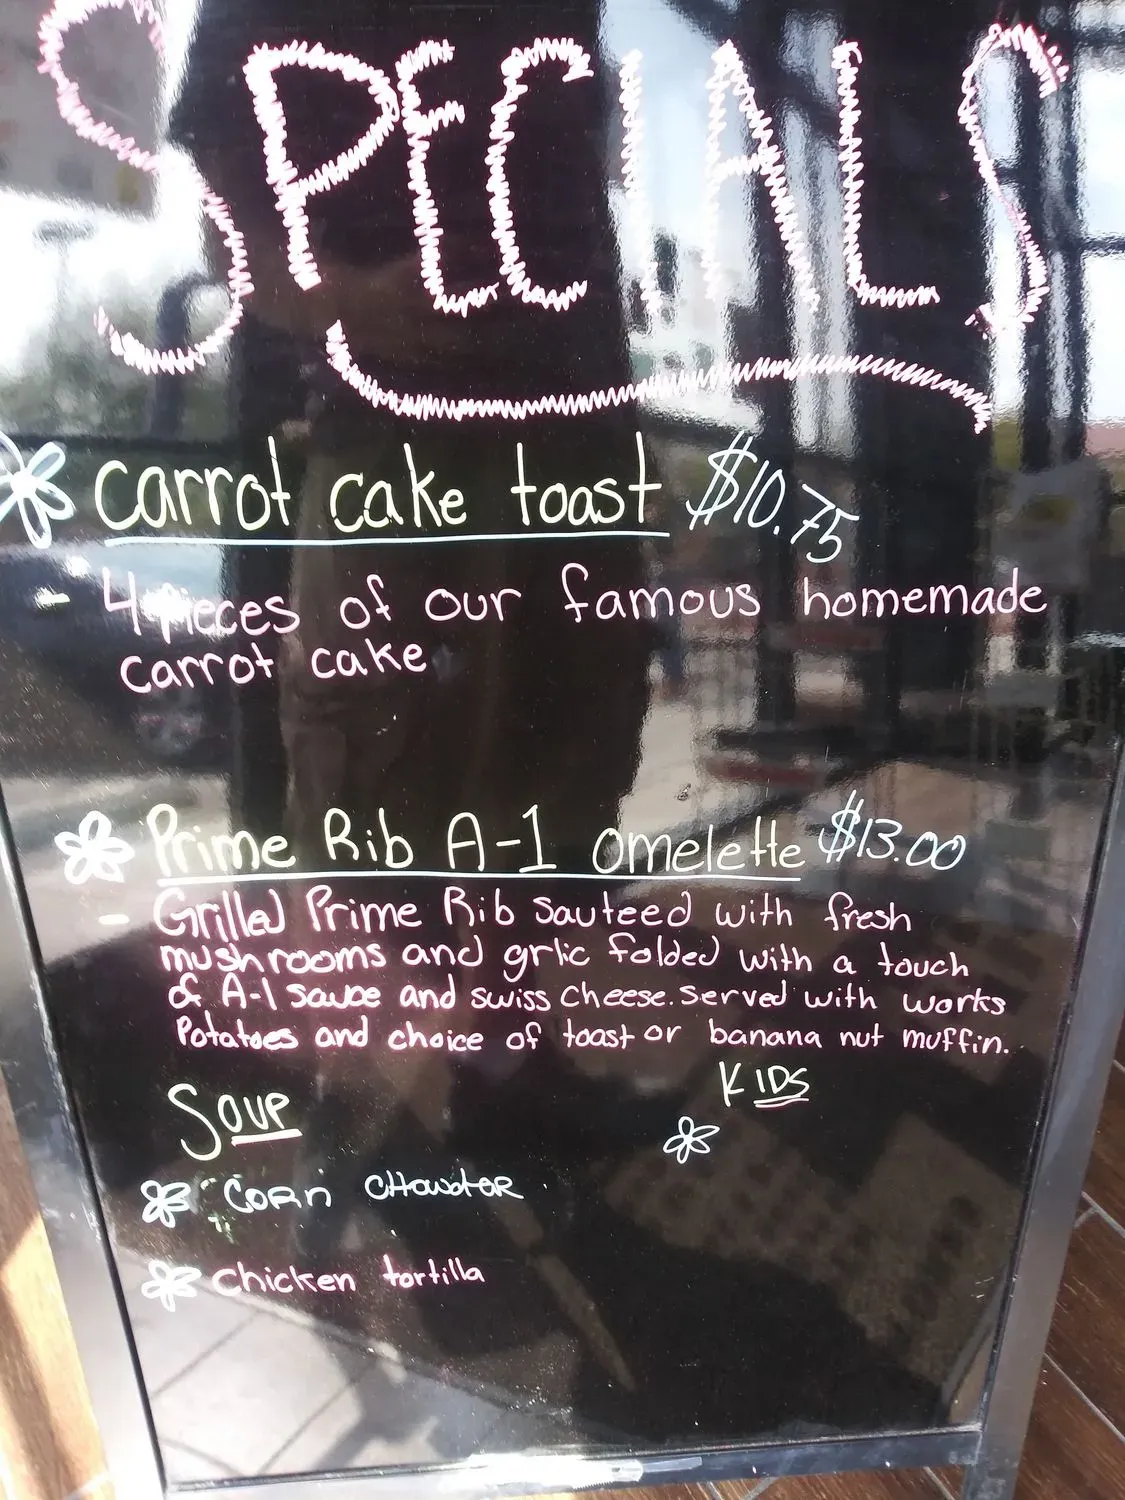 SPECIALS
carrot cake toast $10.75
- 4 pieces of our famous homemade
carrot cake
Prime Rib A-1 omelette $13.00
- Grilled Prime Rib Sauteed with fresh
mushrooms and grlic folded with a touch
of A-1 sauce and swiss cheese. Served with works
Potatoes and choice of toast or banana nut muffin.
KIDS
Soup
Corn CHowder
Chicken tortilla